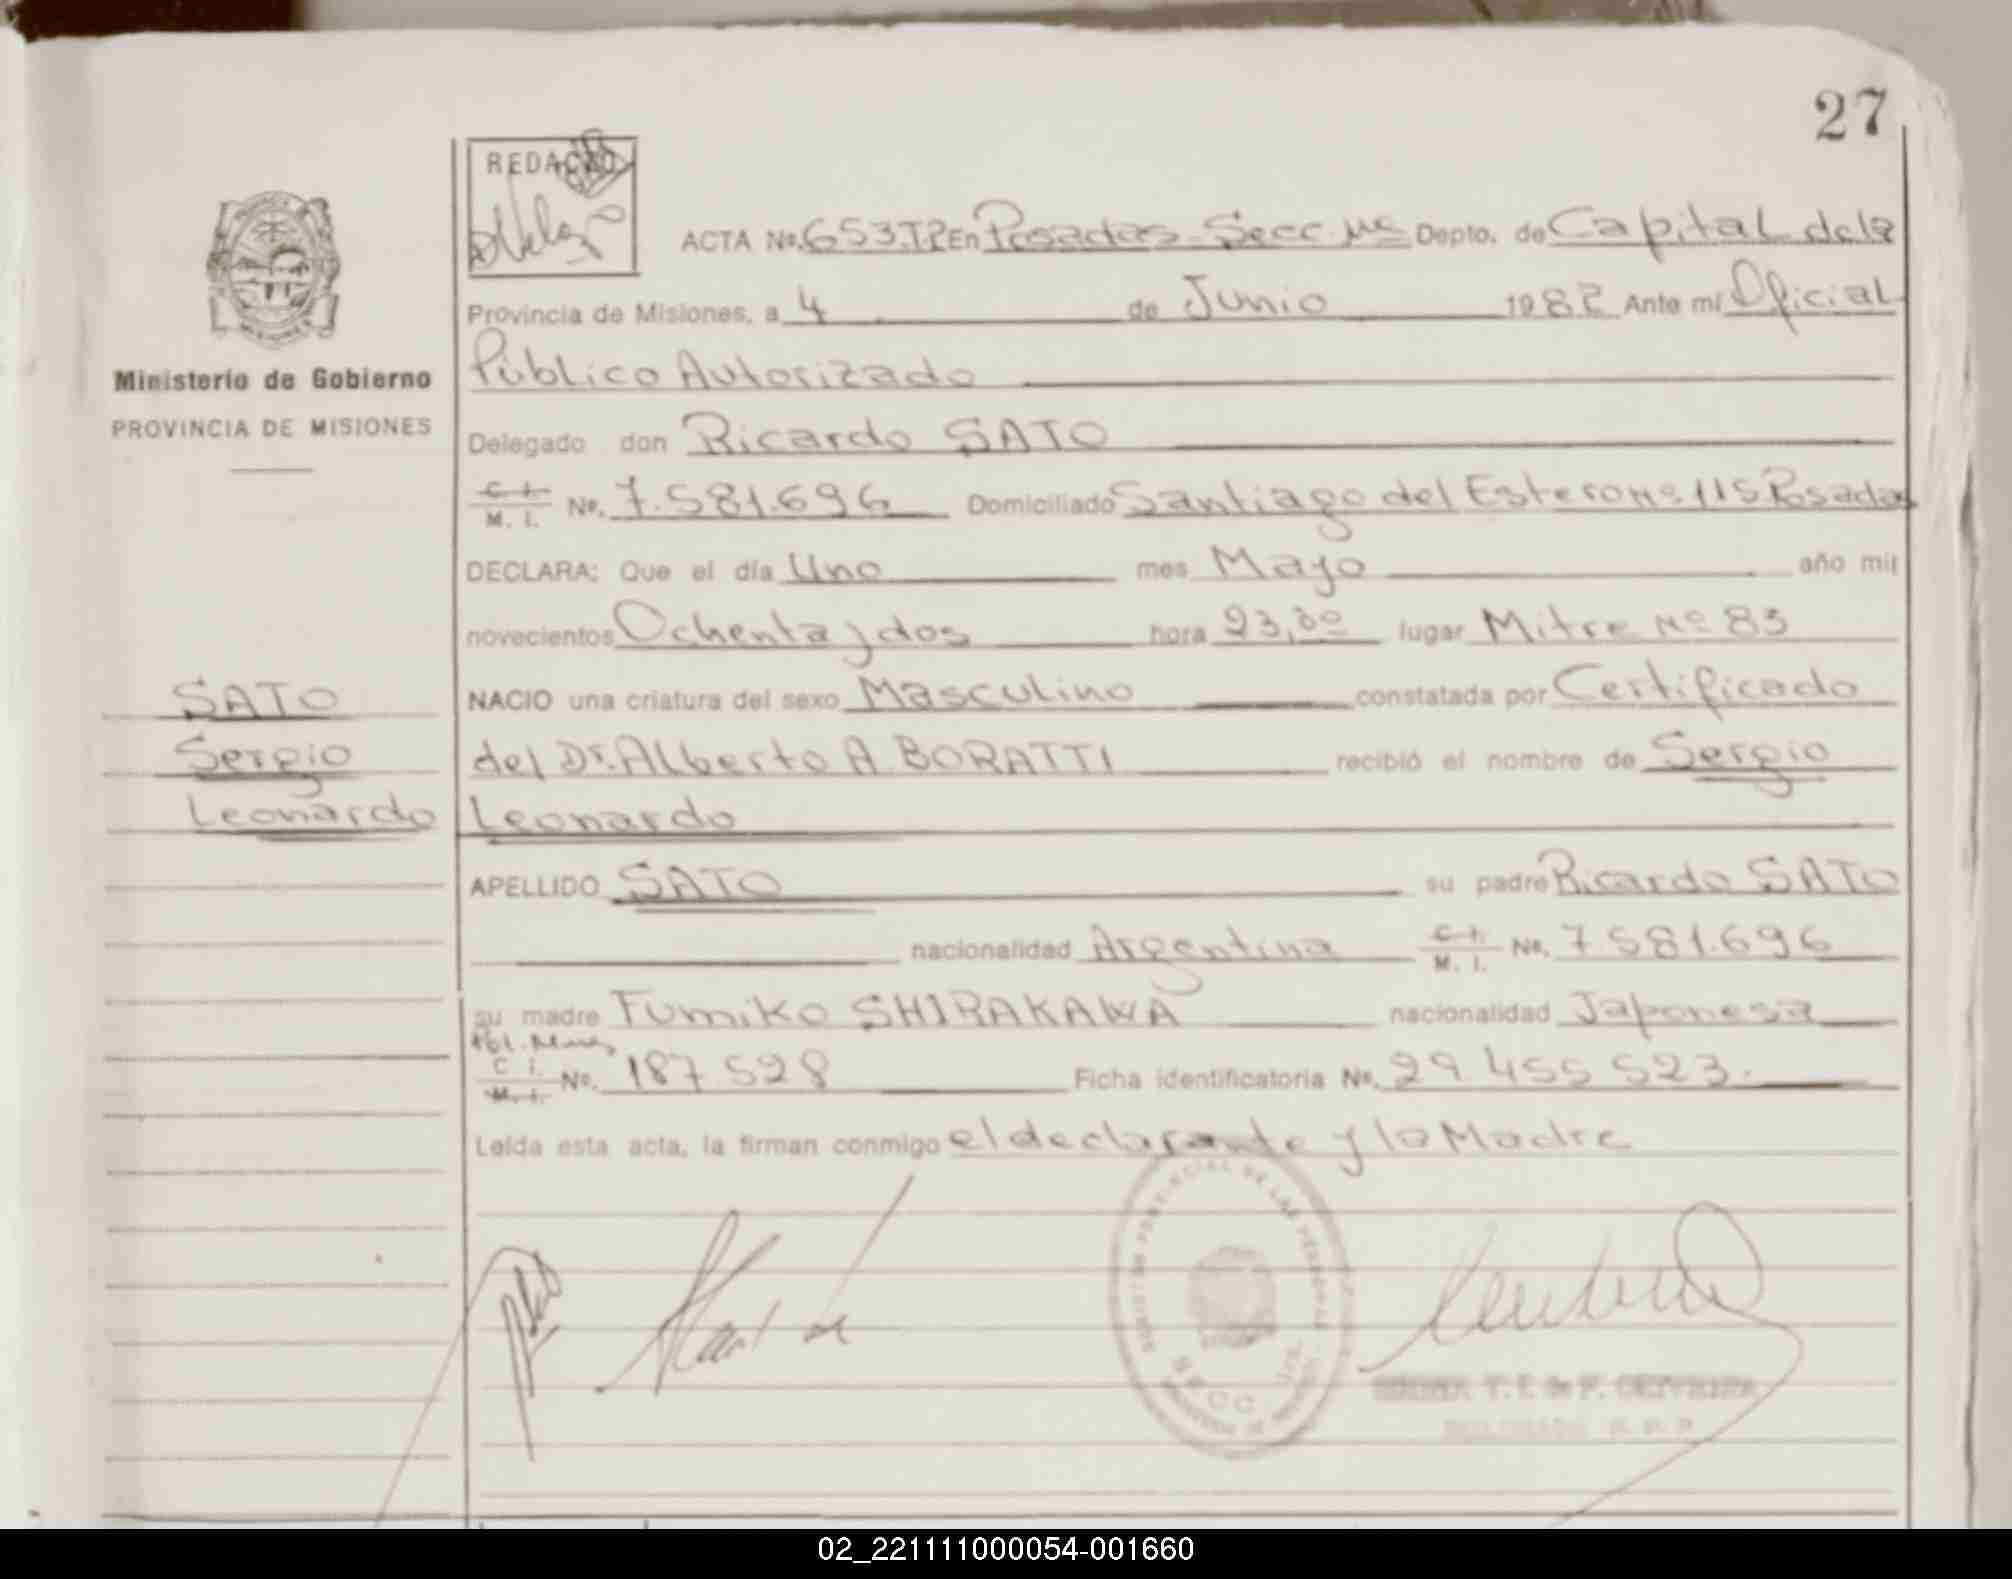 27
REDACTO
ACTA No. 653.TP En Posadas - Secc. Depto. de Capital de la
Provincia de Misiones, a 4 de Junio 1982 Ante mí Oficial
Público Autorizado
Ministerio de Gobierno
PROVINCIA DE MISIONES
Delegado don Ricardo SATO
C. I. M. I. No. 7.581.696 Domiciliado Santiago del Estero Nº 115 Posadas
DECLARA: Que el día Uno mes Mayo año mil
novecientos Ochenta y dos hora 23,30 lugar Mitre Nº 83
SATO
Sergio
Leonardo
NACIO una criatura del sexo Masculino constatada por Certificado
del Dr. Alberto A BORATTI recibió el nombre de Sergio
Leonardo
APELLIDO SATO su padre Ricardo SATO
nacionalidad Argentina C. I. M. I. No. 7581.696
su madre Fumiko SHIRAKAWA nacionalidad Japonesa
Pol. C. I. M. I. No. 187.528 Ficha identificatoria No. 29.455.523.
Leída esta acta, la firman conmigo el declarante y la Madre
02_221111000054-001660